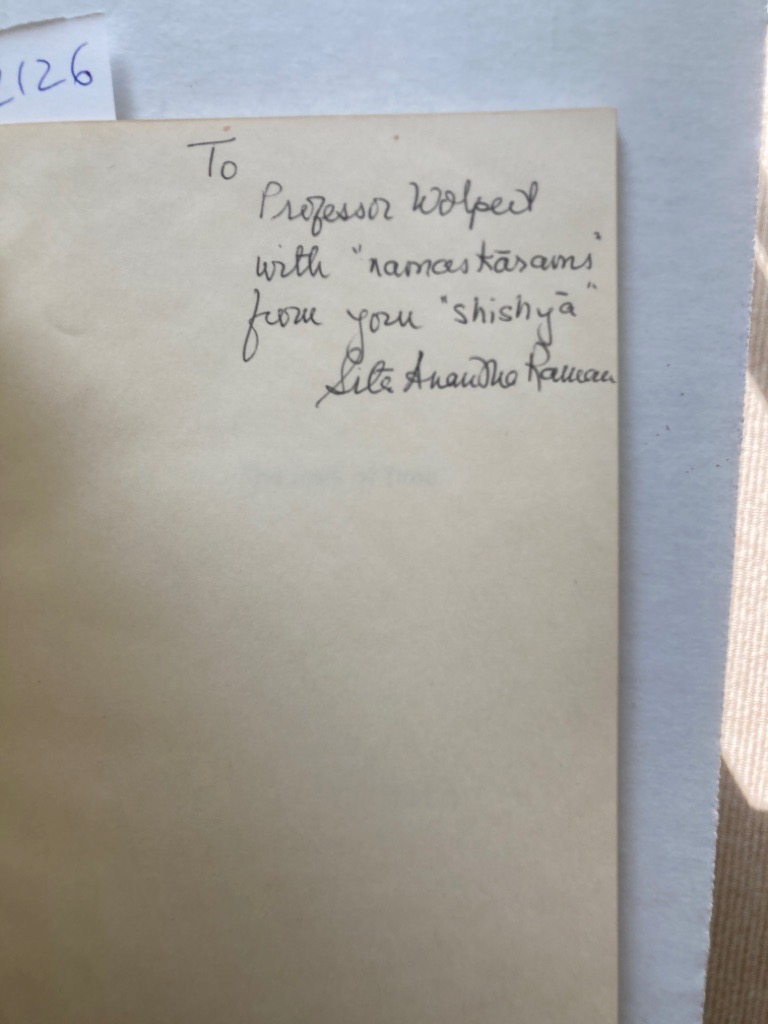 2126
To
Professor Wolpert
with "namaskārams"
from your "shishyā"
Sita Anantha Raman